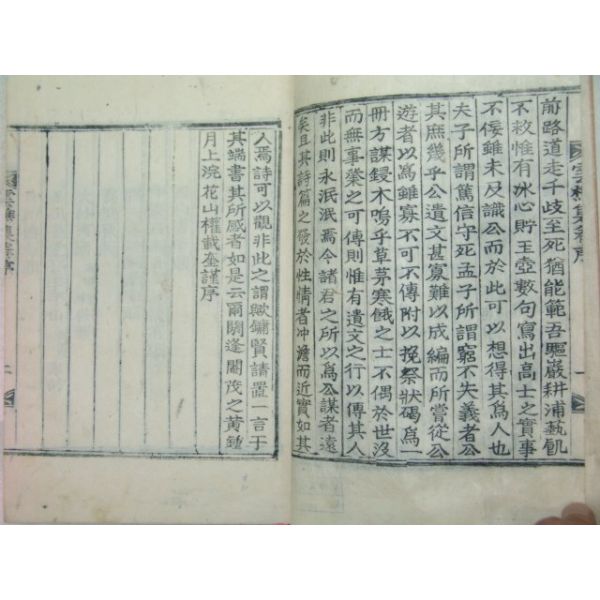 前路道走千歧至死猶能範吾驅巖耕浦藝飢
不救惟有氷心貯玉壺數句寫出高士之實事
不佞雖未及識公而於此可以想得其爲人也
夫子所謂篤信守死孟子所謂窮不失義者公
其庶幾乎公遺文甚寡難以成編而所嘗從公
遊者以爲雖寡不可不傳附以挽祭狀碣爲一
冊方謀鋟木嗚乎草茅寒餓之士不偶於世沒
而無事業之可傳則惟有遺文之行以傳其人
非此則永泯泯焉今諸君之所以爲公謀者遠
矣且其詩篇之發於性情者冲澹而近實如其
人焉詩可以觀非此之謂歟鏞賢請置一言于
其端書其所感者如是云爾閼逢閹茂之黄鍾
月上浣花山權載奎謹序